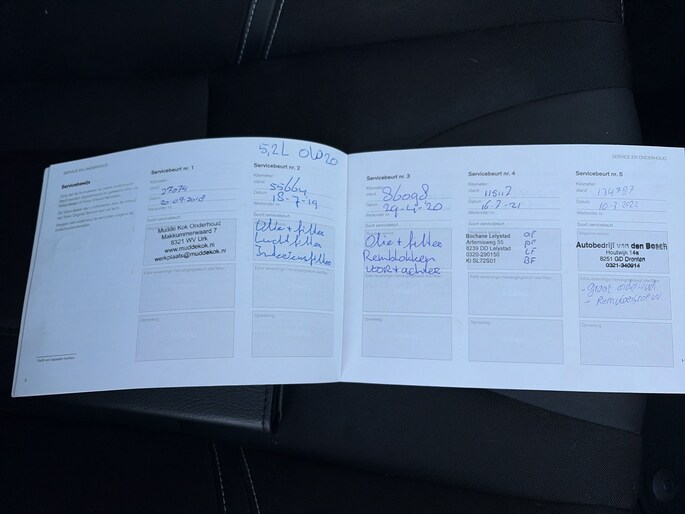 SERVICE EN ONDERHOUD
Servicebewijs
Servicebeurt nr. 1
Kilometer-
stand
27074
Datum
20-09-2018
Mudde Kok Onderhoud
Makkummerwaard 7
8321 WV Urk
www.muddekok.nl
werkplaats@muddekok.nl
Opmerking
5,2L 0W20
Servicebeurt nr. 2
Kilometer-
stand
55664
Datum
18-7-19
Olie + filter
Luchtfilter
Interieurfilter
Opmerking
Servicebeurt nr. 3
Kilometer-
stand
86098
Datum
29-4-20
Olie + filter
Remblokken
voor + achter
Opmerking
Servicebeurt nr. 4
Kilometer-
stand
Datum
16-7-21
Bochane Lelystad
Artemisweg 55
8239 DD Lelystad
0320-290150
KI SL72S01
OF
LF
BF
Opmerking
SERVICE EN ONDERHOUD
Servicebeurt nr. 5
Kilometer-
stand
134787
Datum
10-3-2022
Autobedrijf van den Bosch
Houtwijk 14a
8251 GD Dronten
0321-340914
- Groot onderhoud
Opmerking